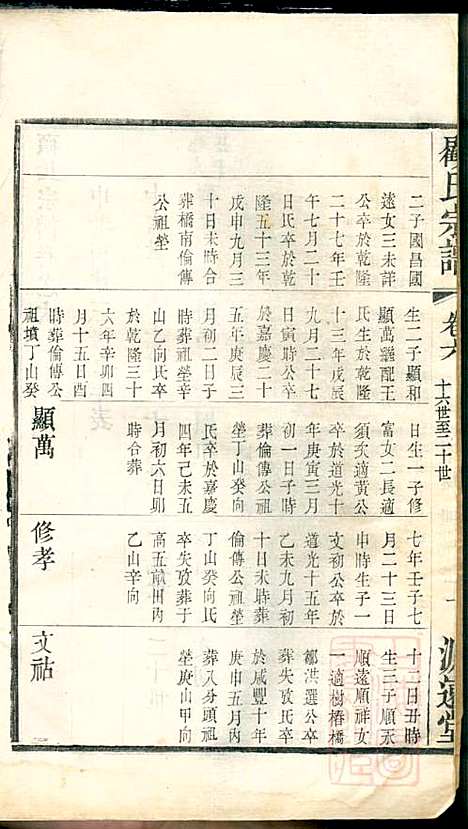 顧氏宗譜
卷六
十六世至二十世
一
源遠堂
二子國昌國
遠女三未詳
公卒於乾隆
二十七年壬
午七月二十
日氏卒於乾
隆五十三年
戊申九月三
十日未時合
葬橋南倫傳
公祖塋
生二子顯和
顯萬繼配王
氏生於乾隆
十三年戊辰
九月二十七
日寅時公卒
於嘉慶二十
五年庚辰三
月初二日子
時葬祖塋辛
山乙向氏卒
於乾隆三十
六年辛卯四
月十五日酉
時葬倫傳公
祖墳丁山癸
日生一子修
富女二長適
須次適黃公
卒於道光十
年庚寅三月
初一日子時
葬倫傳公祖
塋丁山癸向
氏卒於嘉慶
四年己未五
月初六日卯
時合葬
顯萬
七年壬子七
月二十三日
申時生子一
文初公卒於
道光十五年
乙未九月初
十日未時葬
倫傳公祖塋
丁山癸向氏
卒失攷葬于
高五畝田內
乙山辛向
修孝
十二日丑時
生三子順永
順遠順祥女
一適樹椿橋
鄒洪選公卒
葬失攷氏卒
於咸豐十年
庚申五月內
葬入分頭祖
塋庚山甲向
文祜